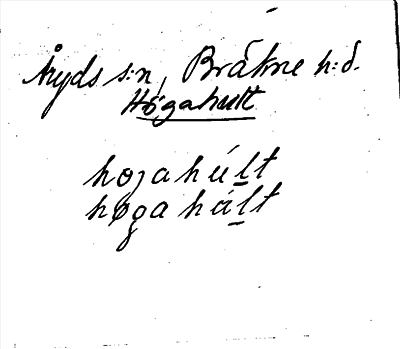 Åryds s:n, Bräkne h:d.
Högahult
hogahúlt
høgahált